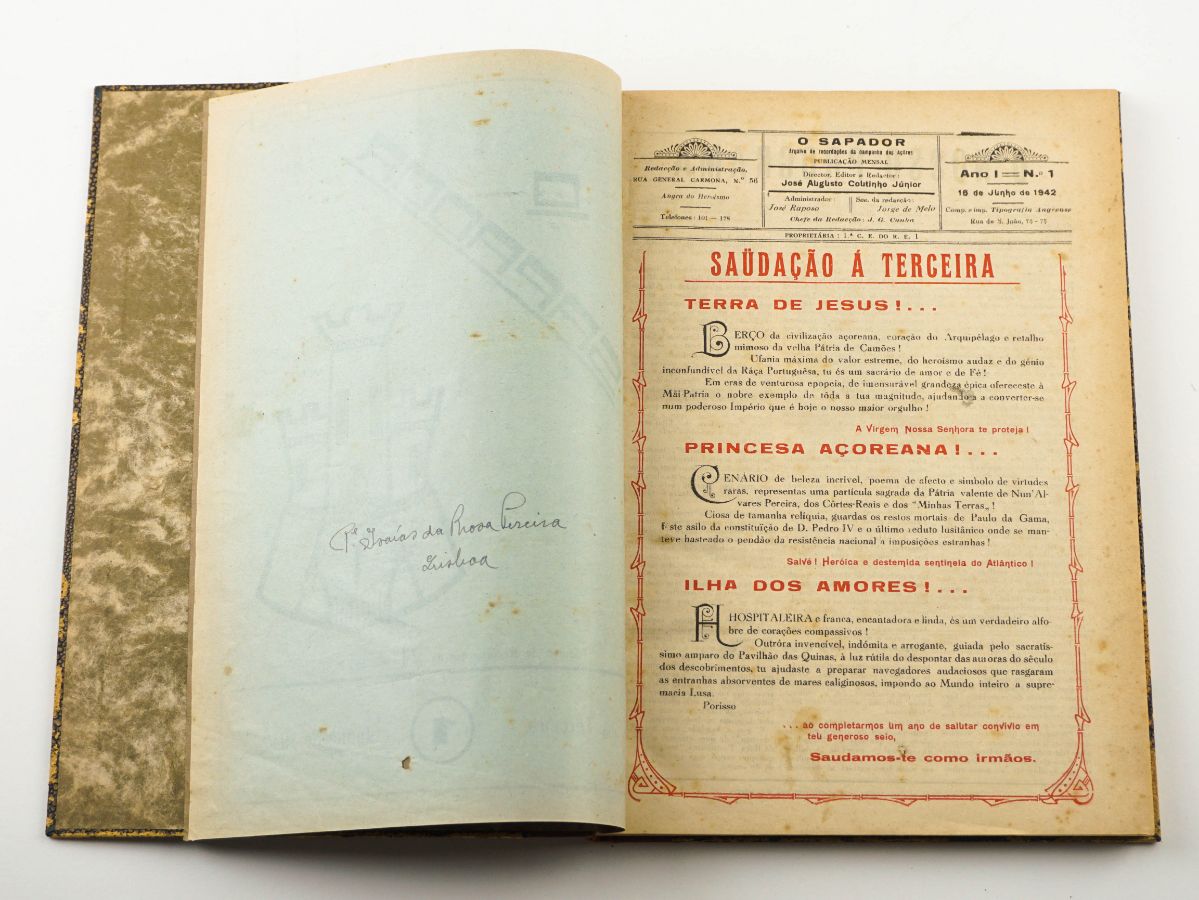 Pe. Isaías da Rosa Pereira
Lisboa
Redacção e Administração,
RUA GENERAL CARMONA, N.º 56
Angra do Heroísmo
Telefones : 101 — 178
O SAPADOR
Arquivo de recordações da campanha dos Açôres
PUBLICAÇÃO MENSAL
Director, Editor e Redactor:
José Augusto Coutinho Júnior
Administrador:
José Raposo
Sec. da redacção:
Jorge de Melo
Chefe da Redacção: J. G. Cunha
Ano I — N.º 1
16 de Junho de 1942
Comp. e imp. Tipografia Angrense
Rua de S. João, 73 - 75
PROPRIETÁRIA : 1.ª C. E. DO R. E. 1
SAÜDAÇÃO Á TERCEIRA
TERRA DE JESUS!...
BERÇO da civilização açoreana, coração do Arquipélago e retalho
mimoso da velha Pátria de Camões !
Ufania máxima do valor estreme, do heroismo audaz e do génio
inconfundível da Ráça Portuguêsa, tu és um sacrário de amor e de Fé !
Em eras de venturosa epopeia, de imensurável grandeza épica ofereceste à
Mãi-Pátria o nobre exemplo de tôda a tua magnitude, ajudando-a a converter-se
num poderoso Império que é hoje o nosso maior orgulho !
A Virgem Nossa Senhora te proteja !
PRINCESA AÇOREANA!...
CENÁRIO de beleza incrível, poema de afecto e símbolo de virtudes
raras, representas uma partícula sagrada da Pátria valente de Nun'Al-
vares Pereira, dos Côrtes-Reais e dos "Minhas Terras„ !
Ciosa de tamanha relíquia, guardas os restos mortais de Paulo da Gama,
fôste asilo da constitüição de D. Pedro IV e o último reduto lusitânico onde se man-
teve hasteado o pendão da resistência nacional a imposições estranhas !
Salvé ! Heróica e destemida sentinela do Atlântico !
ILHA DOS AMORES!...
HOSPITALEIRA e franca, encantadora e linda, és um verdadeiro alfo-
bre de corações compassivos !
Outróra invencível, indómita e arrogante, guiada pelo sacratis-
simo amparo do Pavilhão das Quinas, à luz rútila do despontar das auroras do século
dos descobrimentos, tu ajudaste a preparar navegadores audaciosos que rasgaram
as entranhas absorventes de mares caliginosos, impondo ao Mundo inteiro a supre-
macia Lusa.
Porisso
...ao completarmos um ano de salutar convivio em
teu generoso seio,
Saudamos-te como irmãos.